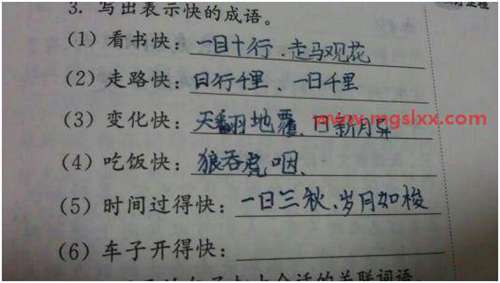 3. 写出表示快的成语。
(1) 看书快：一目十行、走马观花
(2) 走路快：日行千里、一日千里
(3) 变化快：天翻地覆、日新月异
www.mgslxx.com
(4) 吃饭快：狼吞虎咽、
(5) 时间过得快：一日三秋、岁月如梭
(6) 车子开得快：